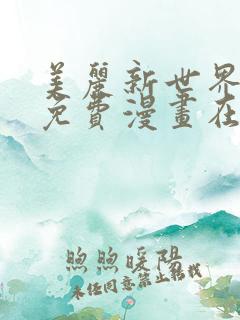 美麗新世界
免費漫畫在
煦煦暖陽
未经同意禁止转载